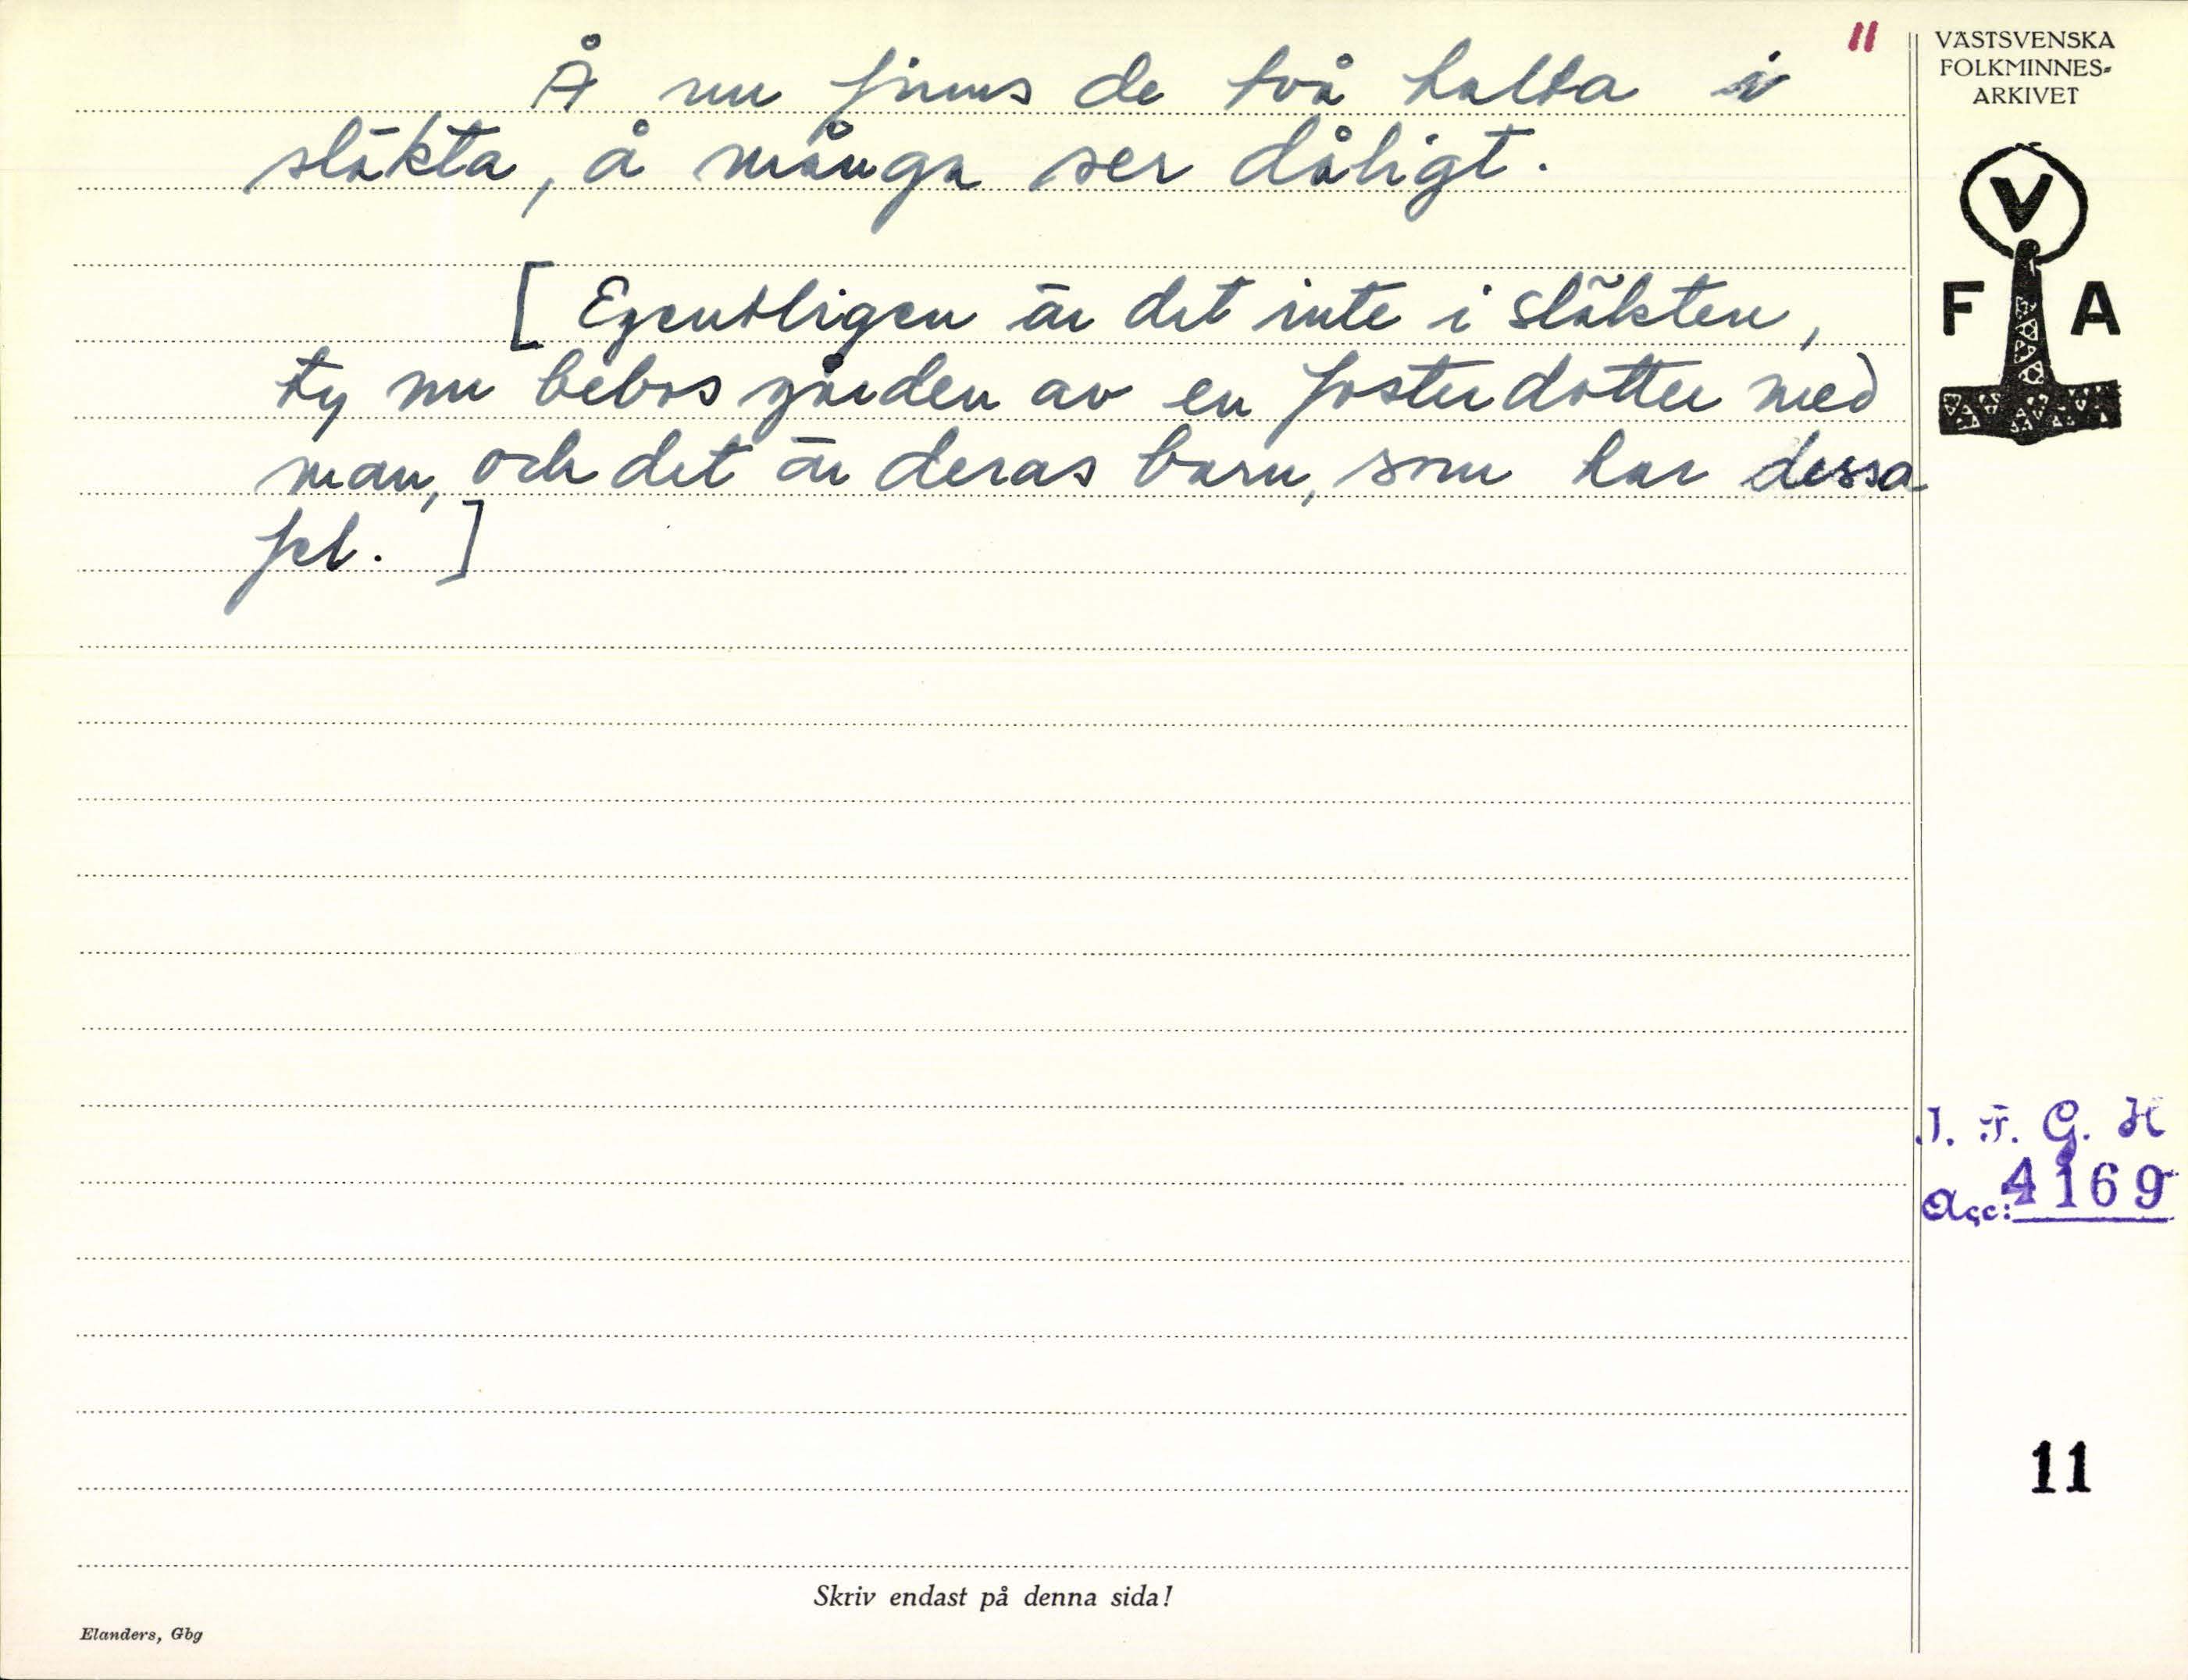 11
VÄSTSVENSKA
FOLKMINNES-
ARKIVET
V
F A
Å nu finns de två halta i
släkta, å många ser dåligt.
[Egentligen är det inte i släkten,
ty nu bebos gården av en fosterdotter med
man, och det är deras barn, som har dessa
fel.]
I. F. G. H
Acc: 4169
11
Skriv endast på denna sida!
Elanders, Gbg